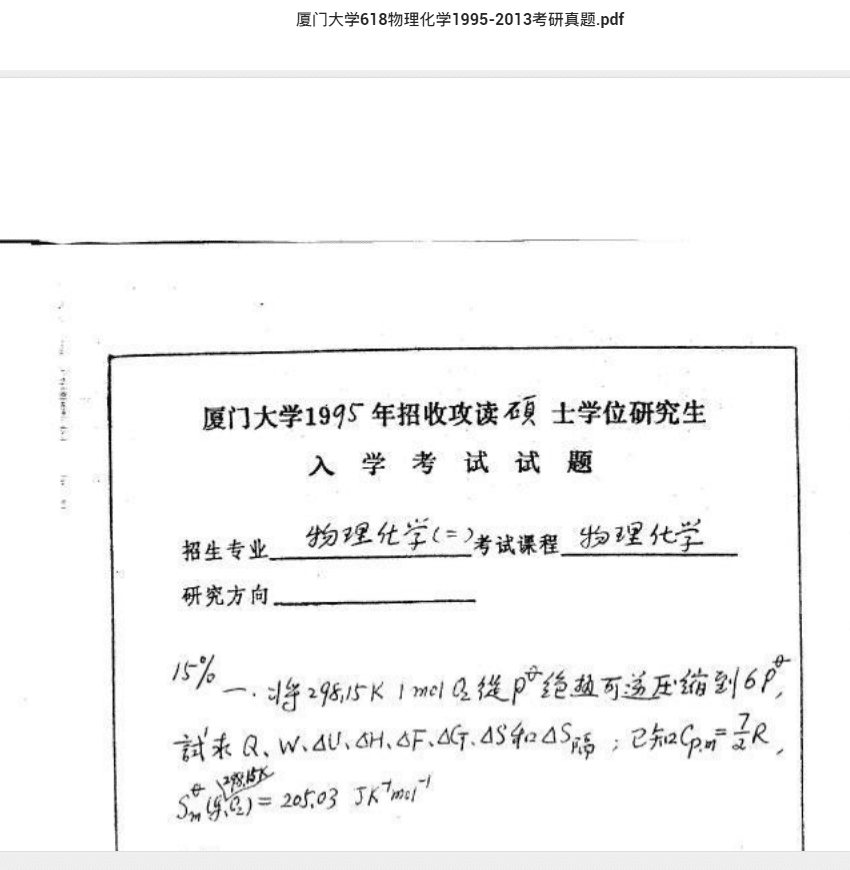 厦门大学618物理化学1995-2013考研真题.pdf
厦门大学1995年招收攻读硕士学位研究生
入学考试试题
招生专业 物理化学(二) 考试课程 物理化学
研究方向
15% 一.将298.15K 1mol O₂ 從 P^θ 绝热可逆压缩到6P^θ,
試求 Q、W、ΔU、ΔH、ΔF、ΔG、ΔS和ΔS隔;已知Cp,m=7/2R,
S_m^θ(g,O₂,298.15K)=205.03 JK⁻¹mol⁻¹